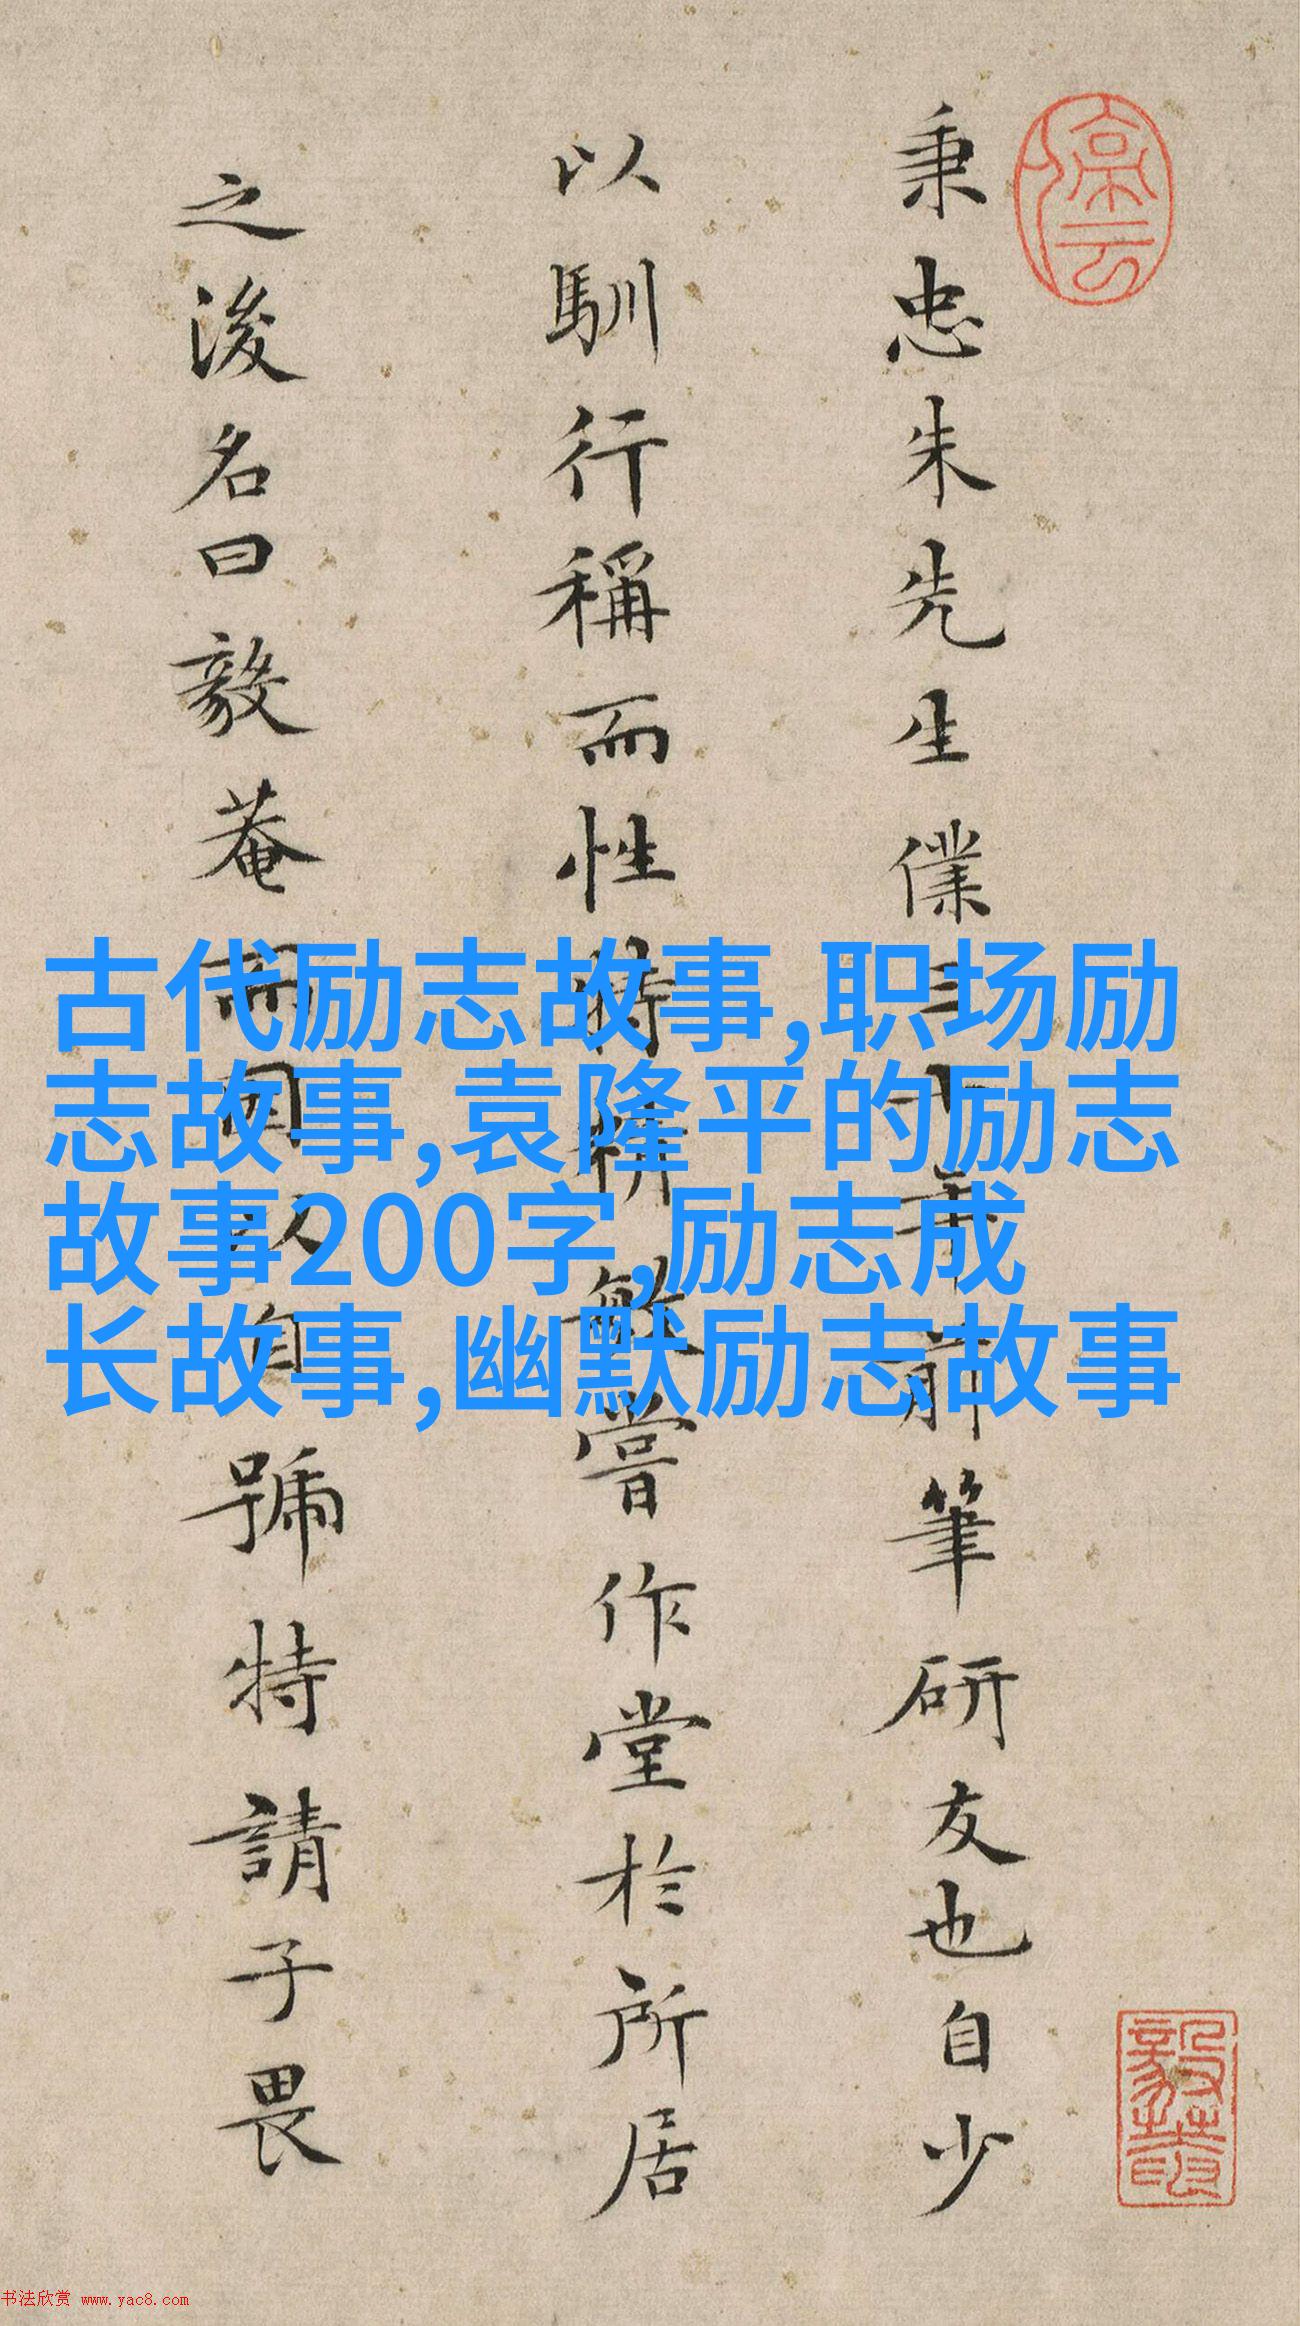 秉忠朱先生僕三十年前筆研友也自少
以馴行稱而性特耕嘗作堂於所居
之後名曰毅菴而因以自號特請子畏
古代励志故事,职场励
志故事,袁隆平的励志
故事200字,励志成
长故事,幽默励志故事
书法欣赏 www.yac8.com